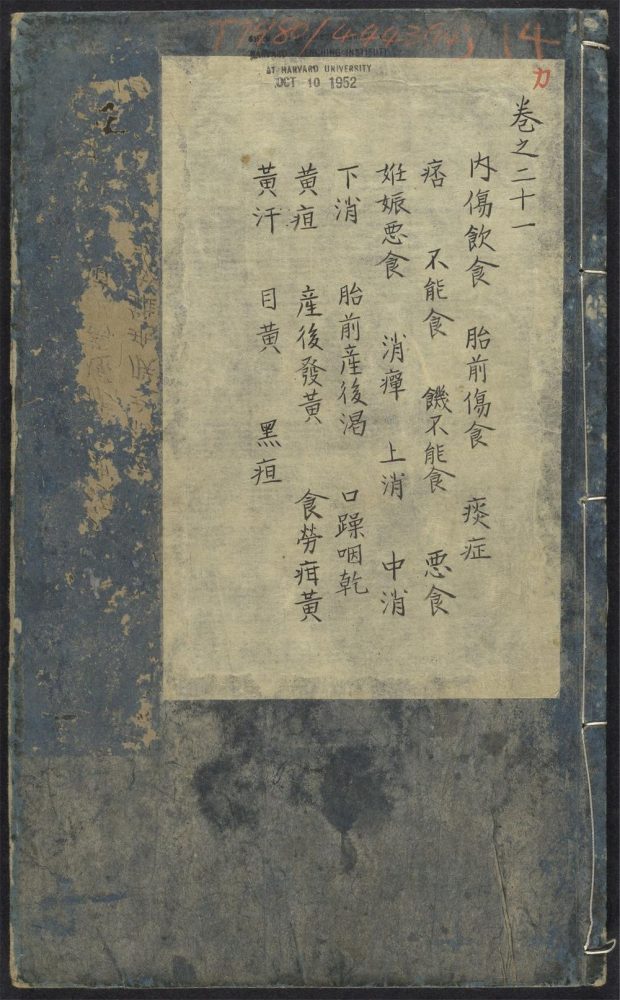 HARVARD-YENCHING INSTITUTE
AT HARVARD UNIVERSITY
OCT 10 1952
14
卷之二十一
内傷飲食 胎前傷食 痰症
痞 不能食 饑不能食 悪食
姙娠悪食 消癉 上消 中消
下消 胎前産後渇 口躁咽乾
黄疸 産後發黄 食勞疳黄
黄汗 目黄 黑疸